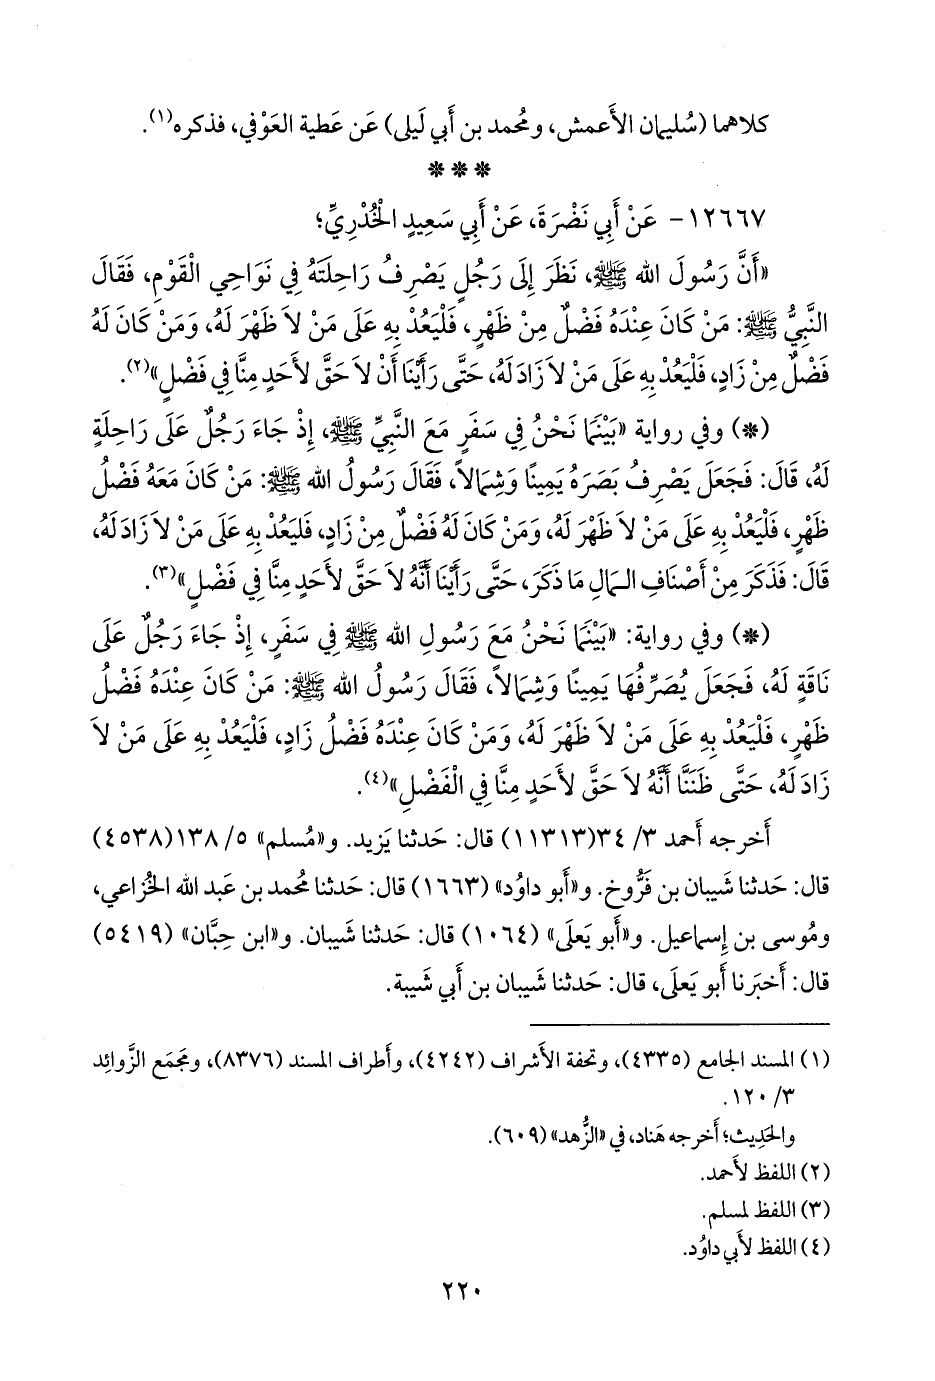 كلاهما (سُليمان الأَعمش، ومُحمد بن أَبي لَيلى) عَن عَطية العَوْفي، فذكره(١).
* * *
١٢٦٦٧- عَنْ أَبِي نَضْرَةَ، عَنْ أَبِي سَعِيدٍ الْخُدْرِيِّ؛
«أَنَّ رَسُولَ الله ﷺ، نَظَرَ إِلَى رَجُلٍ يَصْرِفُ رَاحِلَتَهُ فِي نَوَاحِي الْقَوْمِ، فَقَالَ
النَّبِيُّ ﷺ: مَنْ كَانَ عِنْدَهُ فَضْلٌ مِنْ ظَهْرٍ، فَلْيَعُدْ بِهِ عَلَى مَنْ لاَ ظَهْرَ لَهُ، وَمَنْ كَانَ لَهُ
فَضْلٌ مِنْ زَادٍ، فَلْيَعُدْ بِهِ عَلَى مَنْ لاَ زَادَ لَهُ، حَتَّى رَأَيْنَا أَنْ لاَ حَقَّ لأَحَدٍ مِنَّا فِي فَضْلٍ»(٢).
(*) وفي رواية «بَيْنَمَا نَحْنُ فِي سَفَرٍ مَعَ النَّبِيِّ ﷺ، إِذْ جَاءَ رَجُلٌ عَلَى رَاحِلَةٍ
لَهُ، قَالَ: فَجَعَلَ يَصْرِفُ بَصَرَهُ يَمِينًا وَشِمَالاً، فَقَالَ رَسُولُ الله ﷺ: مَنْ كَانَ مَعَهُ فَضْلُ
ظَهْرٍ، فَلْيَعُدْ بِهِ عَلَى مَنْ لاَ ظَهْرَ لَهُ، وَمَنْ كَانَ لَهُ فَضْلٌ مِنْ زَادٍ، فَلْيَعُدْ بِهِ عَلَى مَنْ لاَ زَادَ لَهُ،
قَالَ: فَذَكَرَ مِنْ أَصْنَافِ الـمَالِ مَا ذَكَرَ، حَتَّى رَأَيْنَا أَنَّهُ لاَ حَقَّ لأَحَدٍ مِنَّا فِي فَضْلٍ»(٣).
(*) وفي رواية: «بَيْنَمَا نَحْنُ مَعَ رَسُولِ الله ﷺ فِي سَفَرٍ، إِذْ جَاءَ رَجُلٌ عَلَى
نَاقَةٍ لَهُ، فَجَعَلَ يُصَرِّفُهَا يَمِينًا وَشِمَالاً، فَقَالَ رَسُولُ الله ﷺ: مَنْ كَانَ عِنْدَهُ فَضْلُ
ظَهْرٍ، فَلْيَعُدْ بِهِ عَلَى مَنْ لاَ ظَهْرَ لَهُ، وَمَنْ كَانَ عِنْدَهُ فَضْلُ زَادٍ، فَلْيَعُدْ بِهِ عَلَى مَنْ لاَ
زَادَ لَهُ، حَتَّى ظَنَنَّا أَنَّهُ لاَ حَقَّ لأَحَدٍ مِنَّا فِي الْفَضْلِ»(٤).
أَخرجه أَحمد ٣/ ٣٤(١١٣١٣) قال: حَدثنا يَزيد. و«مُسلم» ٥/ ١٣٨(٤٥٣٨)
قال: حَدثنا شَيبان بن فَرُّوخ. و«أَبو داوُد» (١٦٦٣) قال: حَدثنا مُحمد بن عَبد الله الخُزاعي،
ومُوسى بن إِسماعيل. و«أَبو يَعلَى» (١٠٦٤) قال: حَدثنا شَيبان. و«ابن حِبَّان» (٥٤١٩)
قال: أَخبَرنا أَبو يَعلَى، قال: حَدثنا شَيبان بن أَبي شَيبة.
(١) المسند الجامع (٤٣٣٥)، وتحفة الأَشراف (٤٢٤٢)، وأَطراف المسند (٨٣٧٦)، ومَجمَع الزَّوائِد
٣/ ١٢٠.
والحَدِيث؛ أَخرجه هَناد، في «الزُّهد» (٦٠٩).
(٢) اللفظ لأَحمد.
(٣) اللفظ لمسلم.
(٤) اللفظ لأَبي داوُد.
٢٢٠